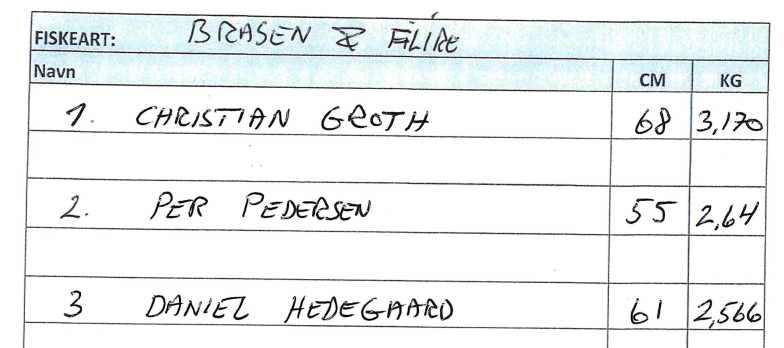 FISKEART: BRASEN & FLIRE
Navn CM KG
1. CHRISTIAN GROTH 68 3,170
2. PER PEDERSEN 55 2,64
3 DANIEL HEDEGAARD 61 2,566